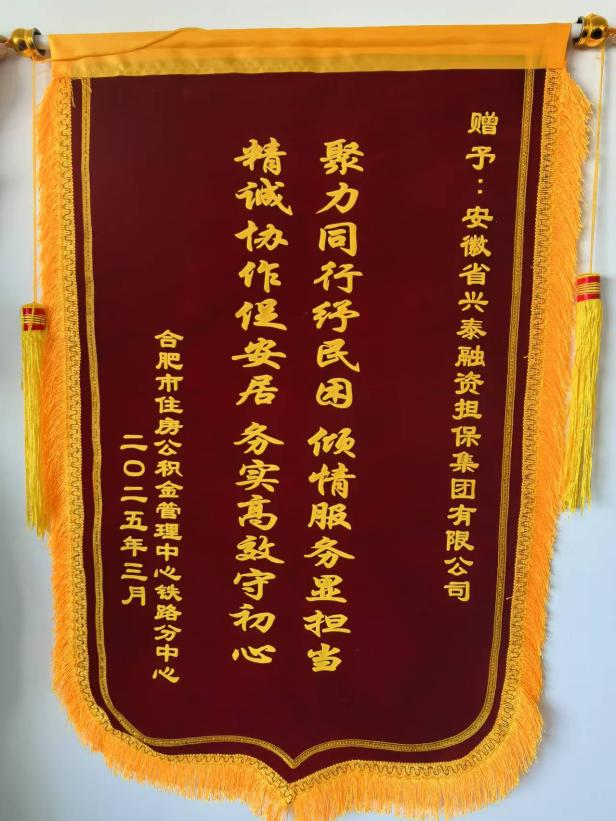 赠予：安徽省兴泰融资担保集团有限公司
聚力同行纾民困 倾情服务显担当
精诚协作促安居 务实高效守初心
合肥市住房公积金管理中心铁路分中心
二〇二五年三月